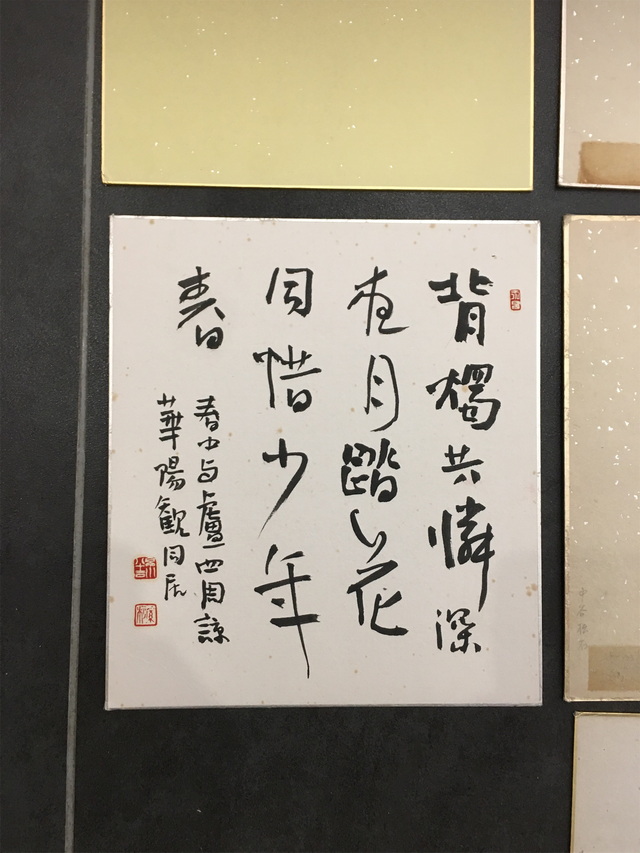 背燭共憐深
夜月踏花
同惜少年
春
春中与盧四周諒
華陽観同居